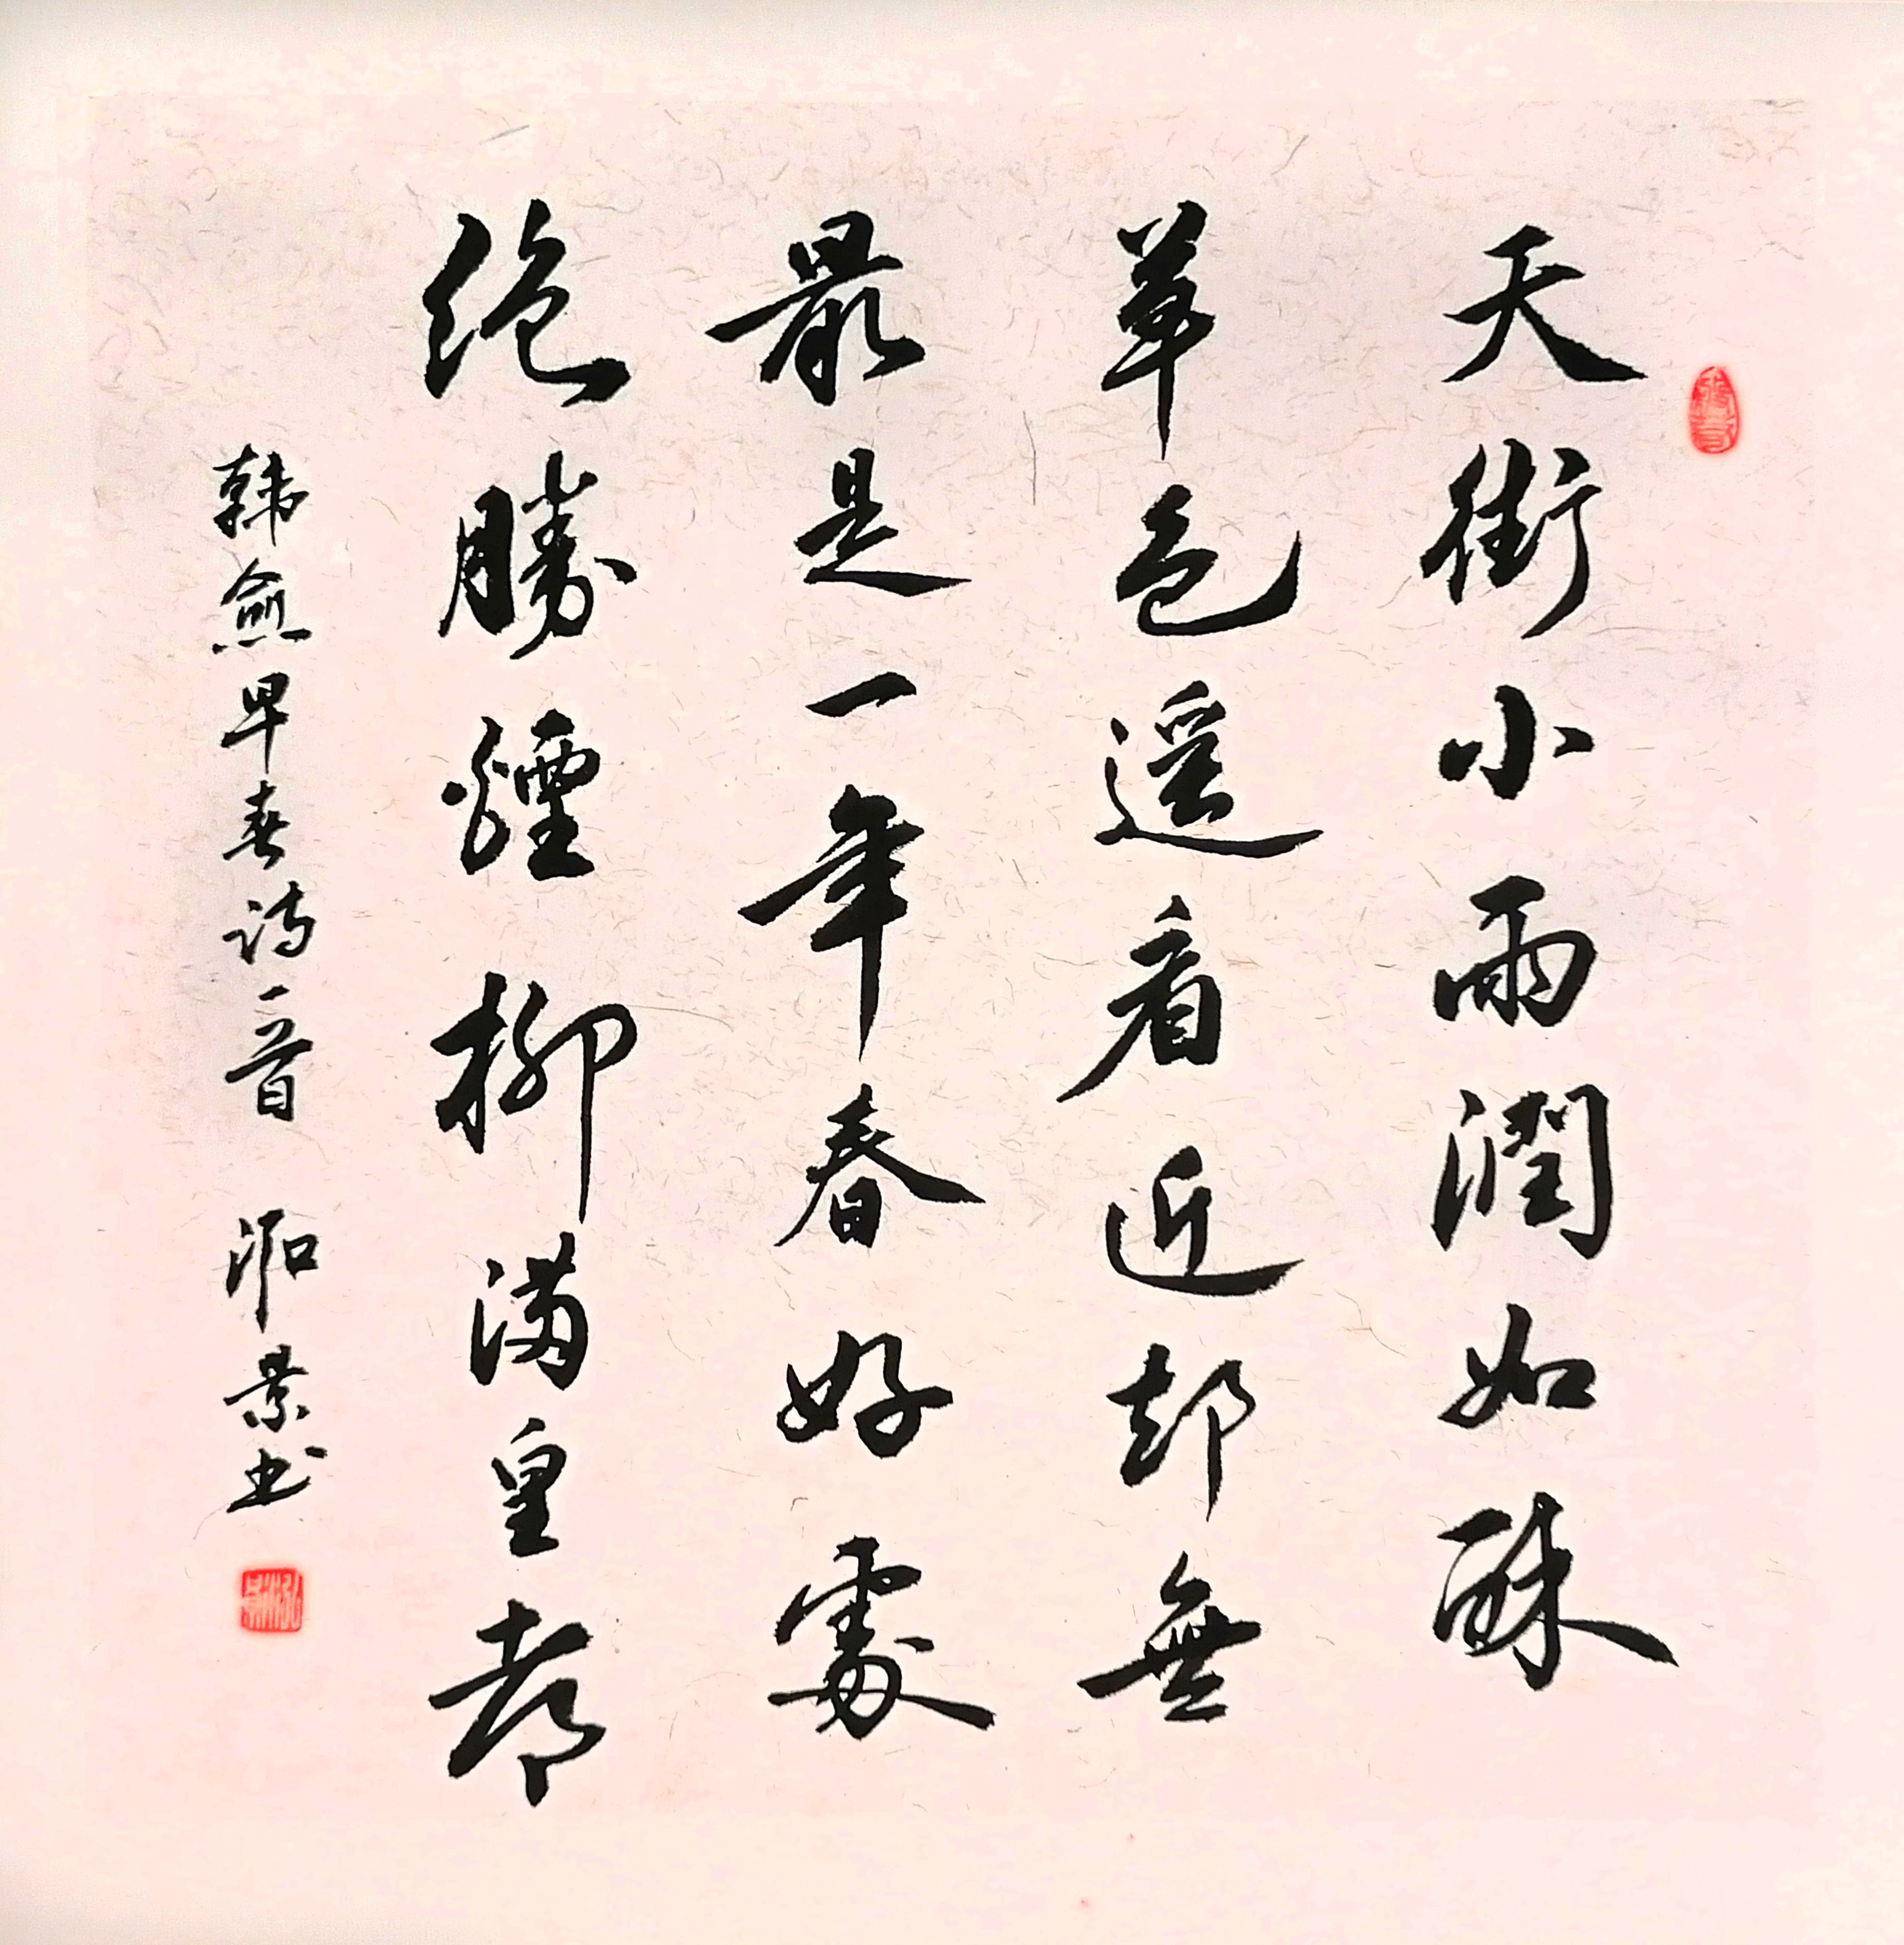 天街小雨潤如酥
草色遥看近却無
最是一年春好處
絶勝煙柳満皇都
韩愈早春诗一首 景书